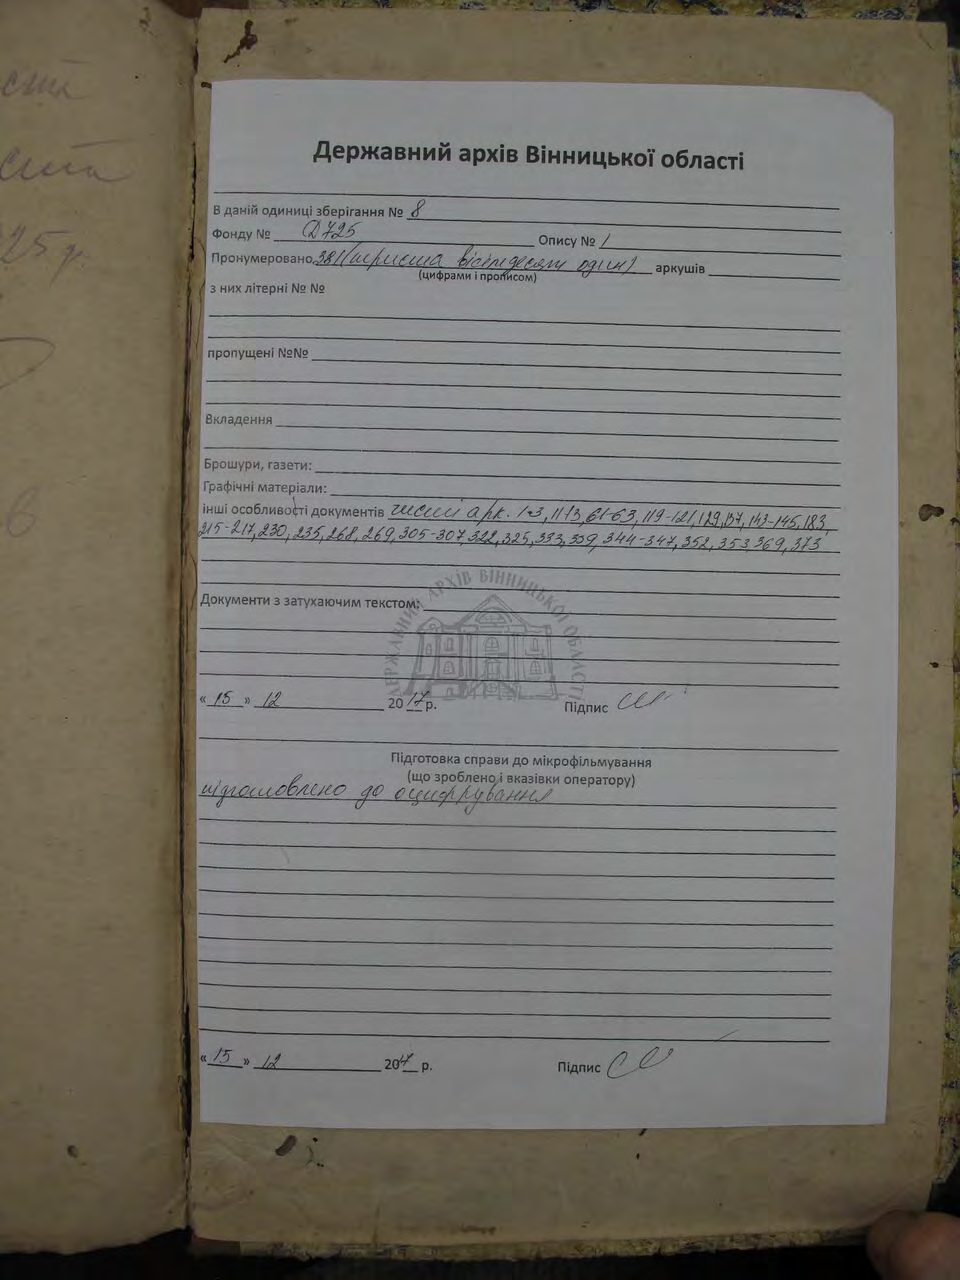 ста
ста
25 р.
Державний архів Вінницької області
В даній одиниці зберігання № 8
Фонду № Д725 Опису № 1
Пронумеровано 381 (триста вісімдесят один) аркушів
(цифрами і прописом)
з них літерні № №
пропущені №№
Вкладення
Брошури, газети:
Графічні матеріали:
інші особливості документів чисті арк. 1-3, 11-13, 61-63, 119-121, 129, 137, 143-145, 183,
215-217, 230, 235, 268, 269, 305-307, 322, 325, 333, 339, 344-347, 352, 353, 369, 373
Документи з затухаючим текстом:
ДЕРЖАВНИЙ АРХІВ ВІННИЦЬКОЇ ОБЛАСТІ
« 15 » 12 2017 р. Підпис
Підготовка справи до мікрофільмування
(що зроблено і вказівки оператору)
підготовлено до оцифрування
« 15 » 12 2017 р. Підпис